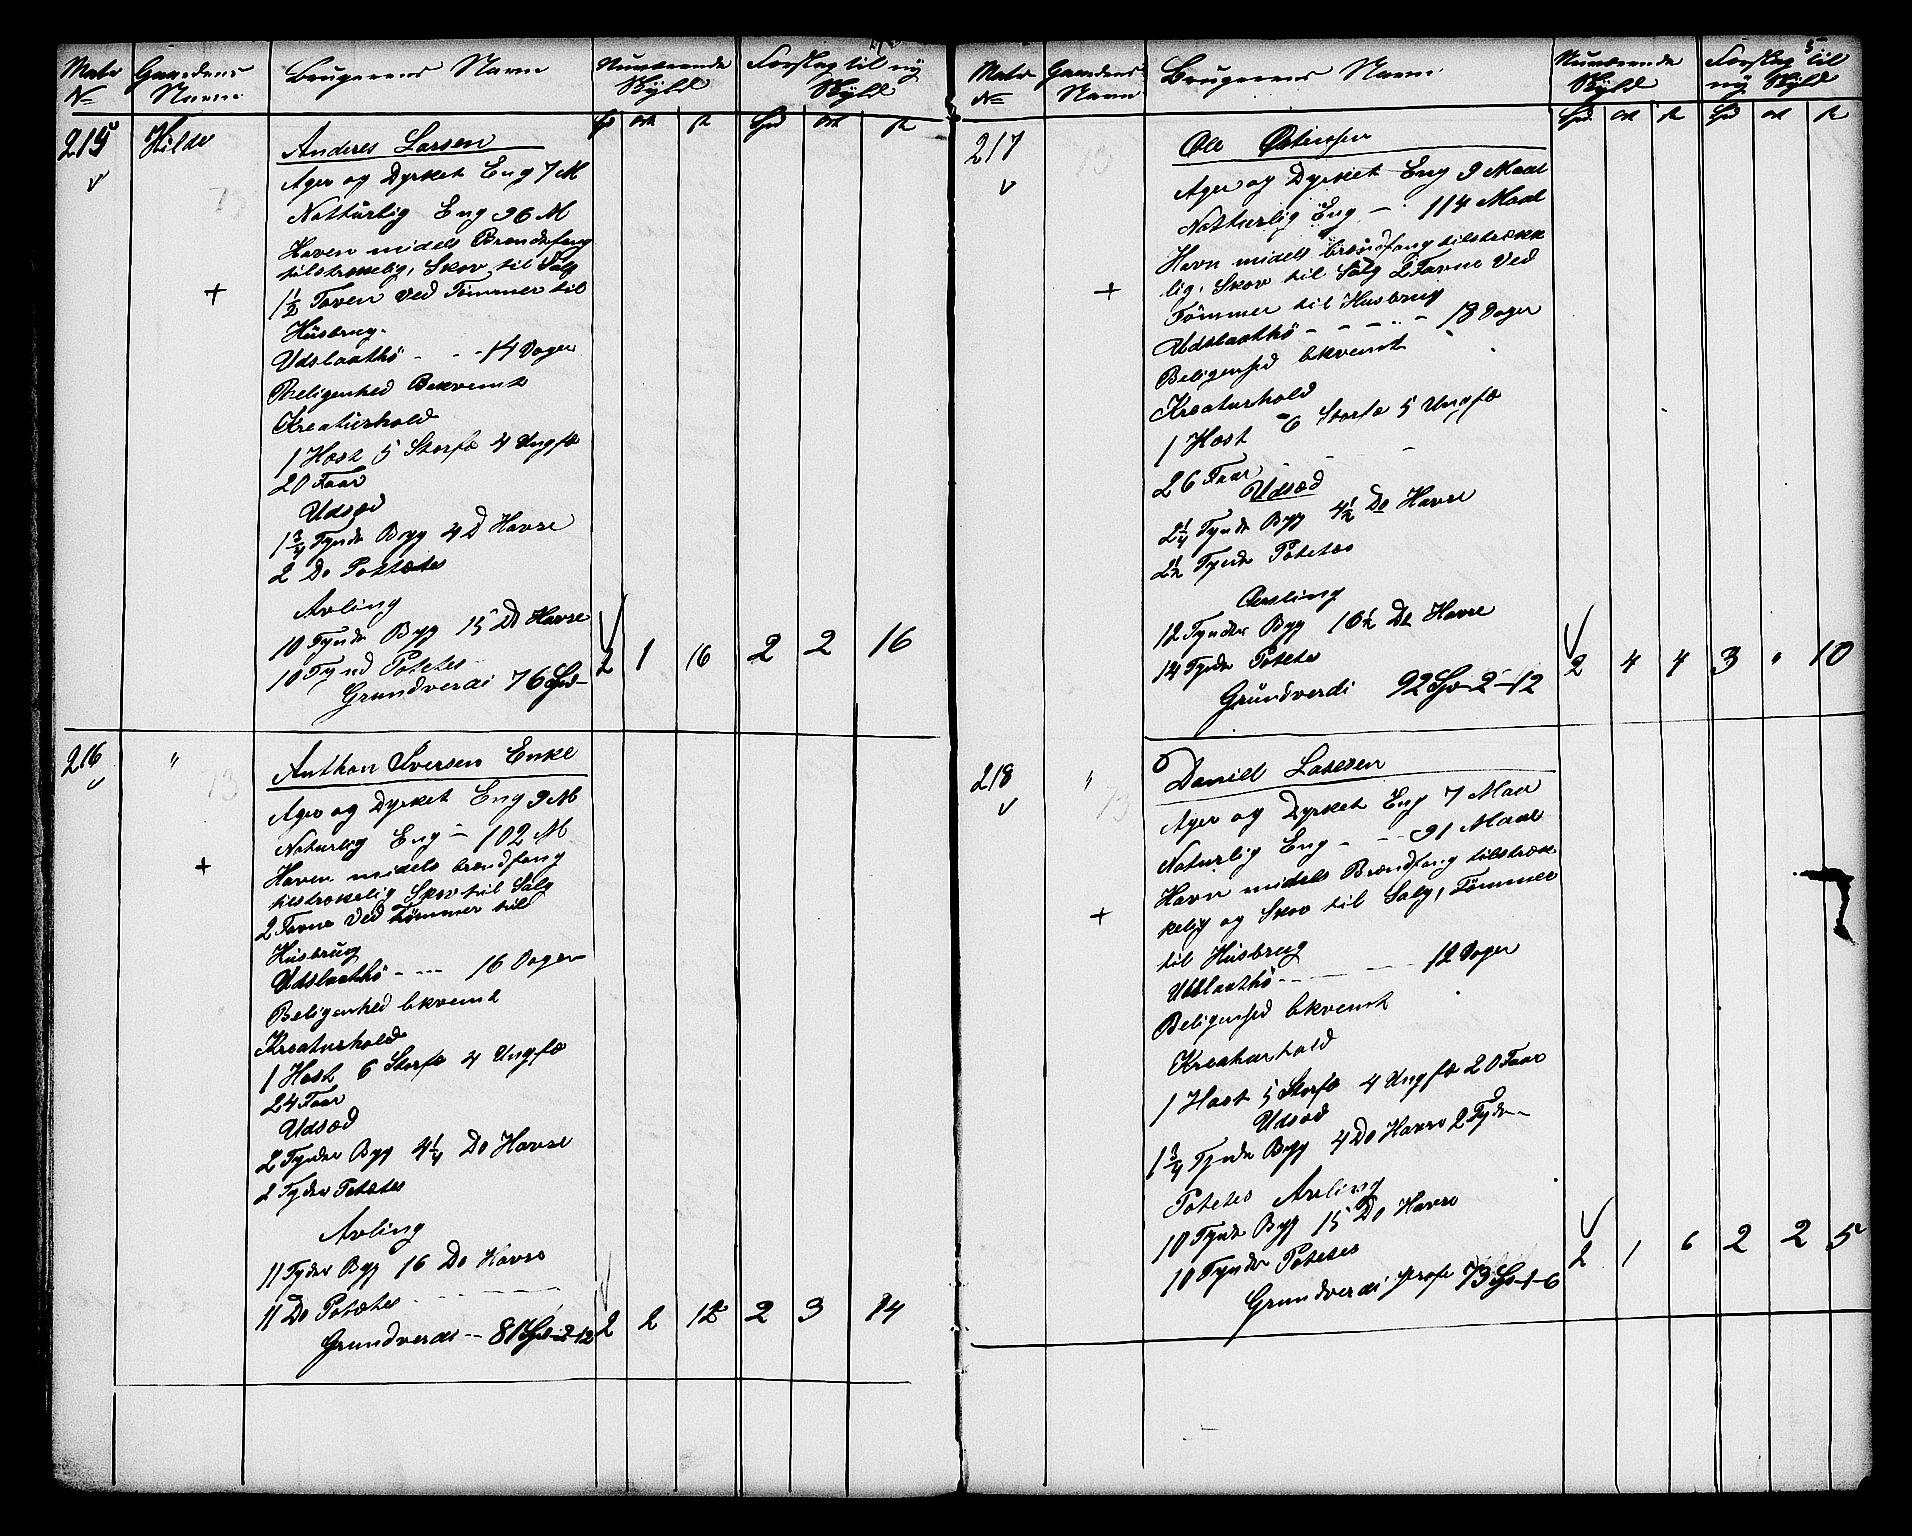 Matr Gaardens Brugerens Navn Nuværende Forslag til ny
No Navn Skyld Skyld
Spd ort sk Spd ort sk
215 Hilde Anderes Larsen
Ager og Dyrket Eng 7 M
Natturlig Eng 96 M
Haven midels Brendefang
tilstrækelig, Skov til Salg
1 1/2 Faven Ved Tømmer til
Husbrug.
Udslaathö - - - 14 Voger
Beligenhed Bekvemt
Kreaturhold
1 Hæst 5 Storfæ 4 Ungfæ
20 Faar
Udsæd
1 3/4 Tynde Byg 4 D Havre
2 Do Pottætes
Avling
10 Tynde Byg 15 Do Havre
10 Tynd Potetes
Grundverdi 76 Spd - 2 1 16 2 2 16
216 " Anthon Iversen Enke
Ager og Dyrket Eng 9 M
Naturlig Eng - 102 M
Haven midels brendfang
tilstrækelig Skov til Salg
2 Favne Ved Tømmer till
Husbrug
Udslaathö - - - 16 Voger
Beligenhed bekvemt
Kreaturhold
1 Hæst 6 Storfæ 4 Ungfæ
24 Faar
Udsæd
2 Tynder Byg 4 1/4 Do Havre
2 Tyder Potætes
Avling
11 Tyder Byg 16 Do Havre
11 Do Potætes
Grundverdi - 81 Spd - 2 - 12 2 2 12 2 3 14
5
Matr Gaardens Brugerens Navn Nuværende Forslag til
No Navn Skyld ny Skyld
Spd ort sk Spd ort sk
217 Ole Østensen
Ager og Dyrket Eng 9 Maal
Natturlig Eng - 114 Maal
Havn midels brændfang tilstrækk
lig, Skov til Salg 2 Favne Ved
Tømmer til Husbrug
Udslaathö - - - - - 18 Voger
Beligenhed bekvemt
Kreaturhold
1 Hæst 6 Storfæ 5 Ungfæ
26 Faar
Udsæd
2 1/4 Tynde Byg 4 1/2 Do Havre
2 1/2 Tynde Potetes
Avling
12 Tynder Byg 16 1/2 Do Havre
14 Tynde Potetes
Grundverdi 92 Spd - 2 - 12 2 4 4 3 " 10
218 " Daniel Larsen
Ager og Dyrket Eng 7 Maal
Naturlig Eng - - 91 Maal
Havn midels Brændfang tilstræk
kelig og Skov til Salg, Tømmer
til Husbrug
Udslaathö - - - - - 12 Voger
Beligenhed bekvemt
Kreaturhold
1 Hæst 5 Storfæ 4 Ungfæ 20 Faar
Udsæd
1 3/4 Tynde Byg 4 Do Havre 2 Tyder
Potetes Avling
10 Tynde Byg 15 Do Havre
10 Tynder Potetes
Grundverdi 73 Spd - 1 - 6 2 1 6 2 2 5